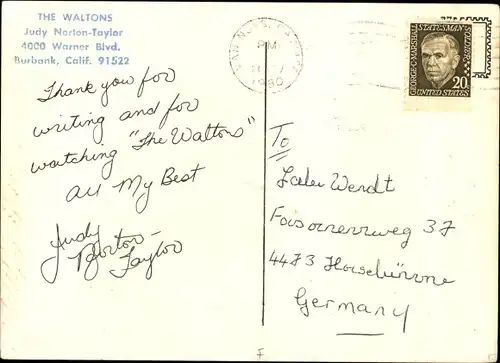 THE WALTONS
Judy Norton-Taylor
4000 Warner Blvd.
Burbank, Calif. 91522
Thank you for
writing and for
watching "The Waltons"
All My Best
Judy
Norton-
Taylor
PM
1980
GEORGE C. MARSHALL
STATESMAN SOLDIER
20c
UNITED STATES
To
Wendt
37
4473
Germany